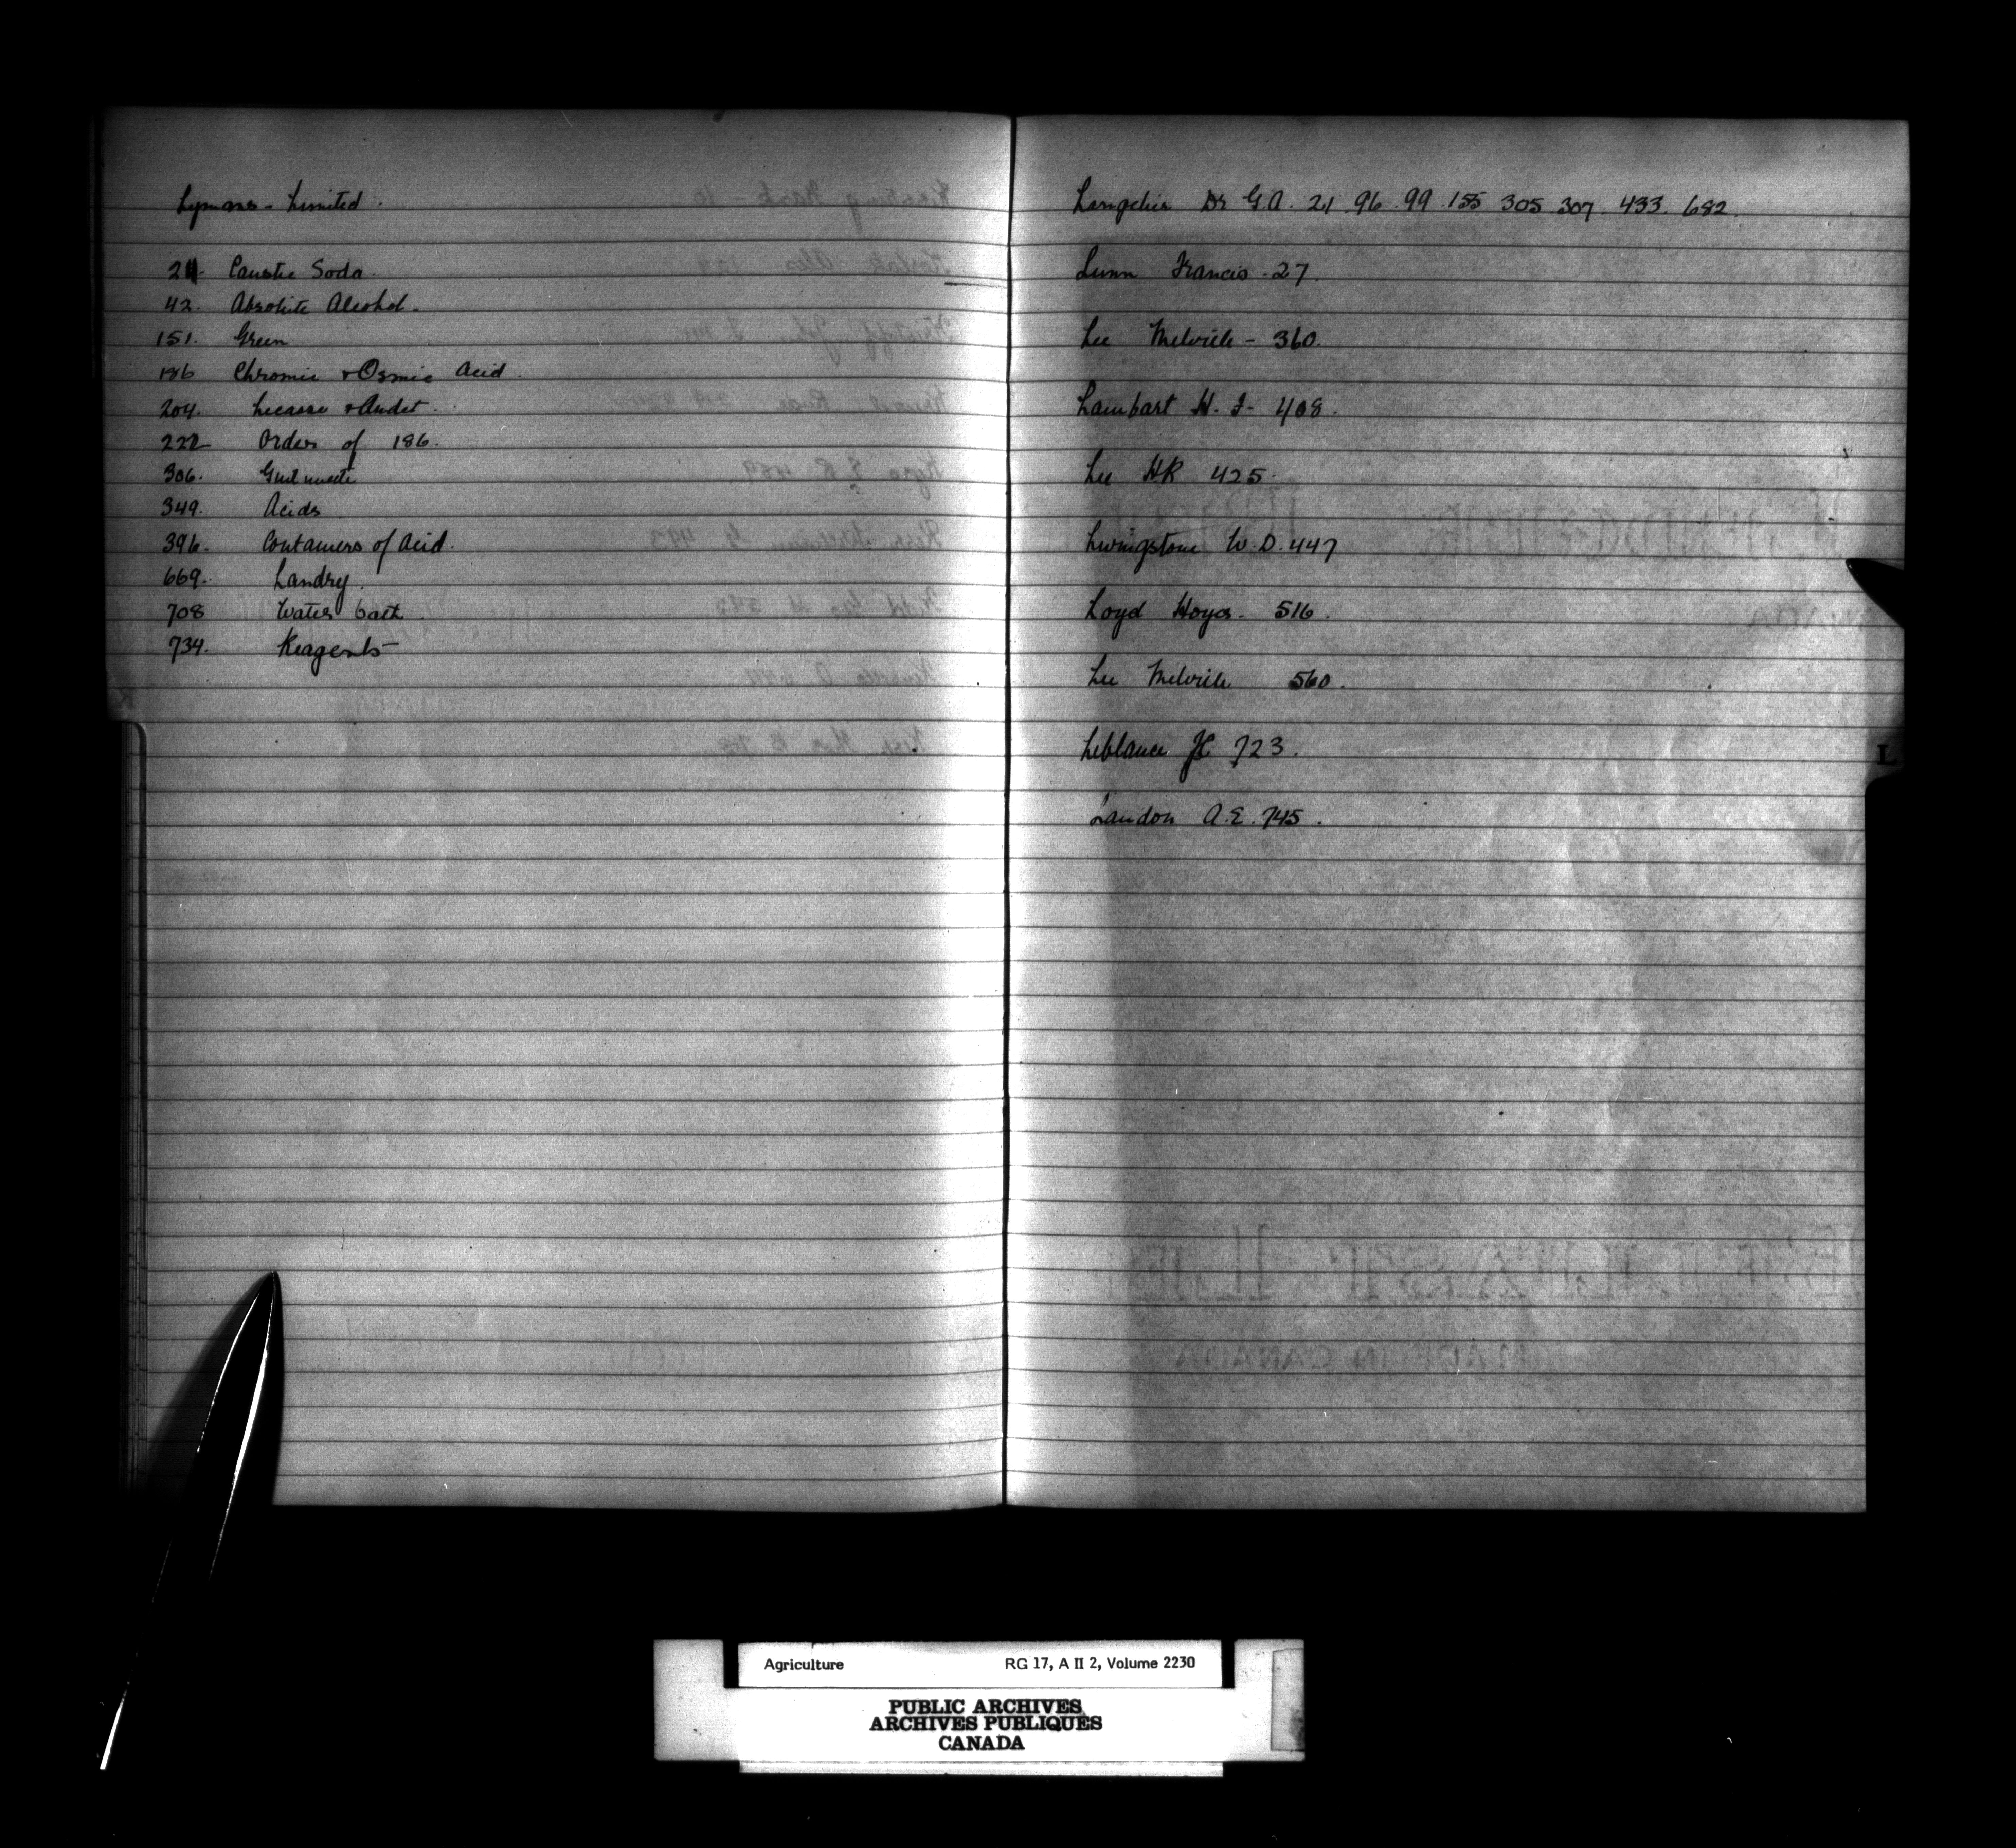 Lymans - Limited.
21. Caustic Soda.
42. Absolute Alcohol.
151. Green
186 Chromic & Osmic Acid.
204. Lecasse & Audet.
222 Orders of 186.
306.
349. Acids
396. Containers of Acid.
669. Landry.
708 Water bath
734. Reagents
Langelier Dr G.A. 21. 96. 99. 155 305 307. 433. 682.
Lunn Francis - 27.
Lee Melville - 360.
Lambart H. F. 408.
Lee HR 425.
Livingstone W. D. 447
Loyd Hoyes. 516.
Lee Melville 560.
Leblance JE 723.
Landon A. E. 745.
L
BELFAST
MADE IN CANADA
Agriculture RG 17, A II 2, Volume 2230
PUBLIC ARCHIVES
ARCHIVES PUBLIQUES
CANADA